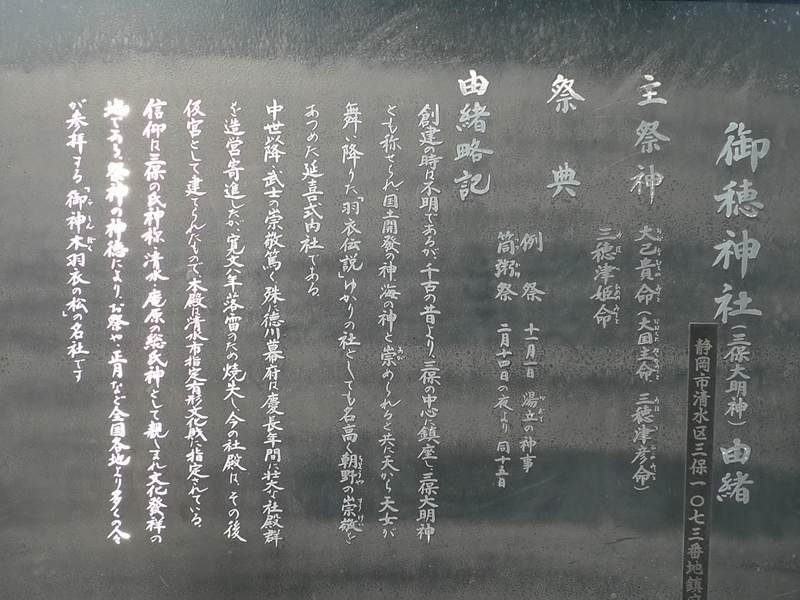 御穂神社(三保大明神)由緒
静岡市清水区三保一〇七三番地鎮
主祭神
大己貴命(大国主命、三穂津彦命)
三穂津姫命
祭典
例祭 十一月一日 湯立の神事
筒粥祭 二月十四日の夜より同十五日
由緒略記
創建の時は不明であるが、千古の昔より、三保の中心に鎮座し三保大明神
とも称せられ、国土開發の神、海の神と崇められると共に天から天女が
舞い降りた「羽衣伝説」ゆかりの社としても名高く朝野の崇敬を
あつめた延喜式内社である。
中世以降、武士の崇敬篤く、殊に徳川幕府は慶長年間に壮大な社殿群
を造営寄進したが、寛文八年落雷のため焼失し、今の社殿は、その後
仮宮として建てられたもので、本殿は清水市指定有形文化財に指定されている。
信仰は三保の氏神様、清水・庵原の総氏神として親しまれ文化發祥の
地であり、祭神の神徳により、お祭や、正月など全国各地より多くの人々
が参拝する。「御神木羽衣の松」の名社です